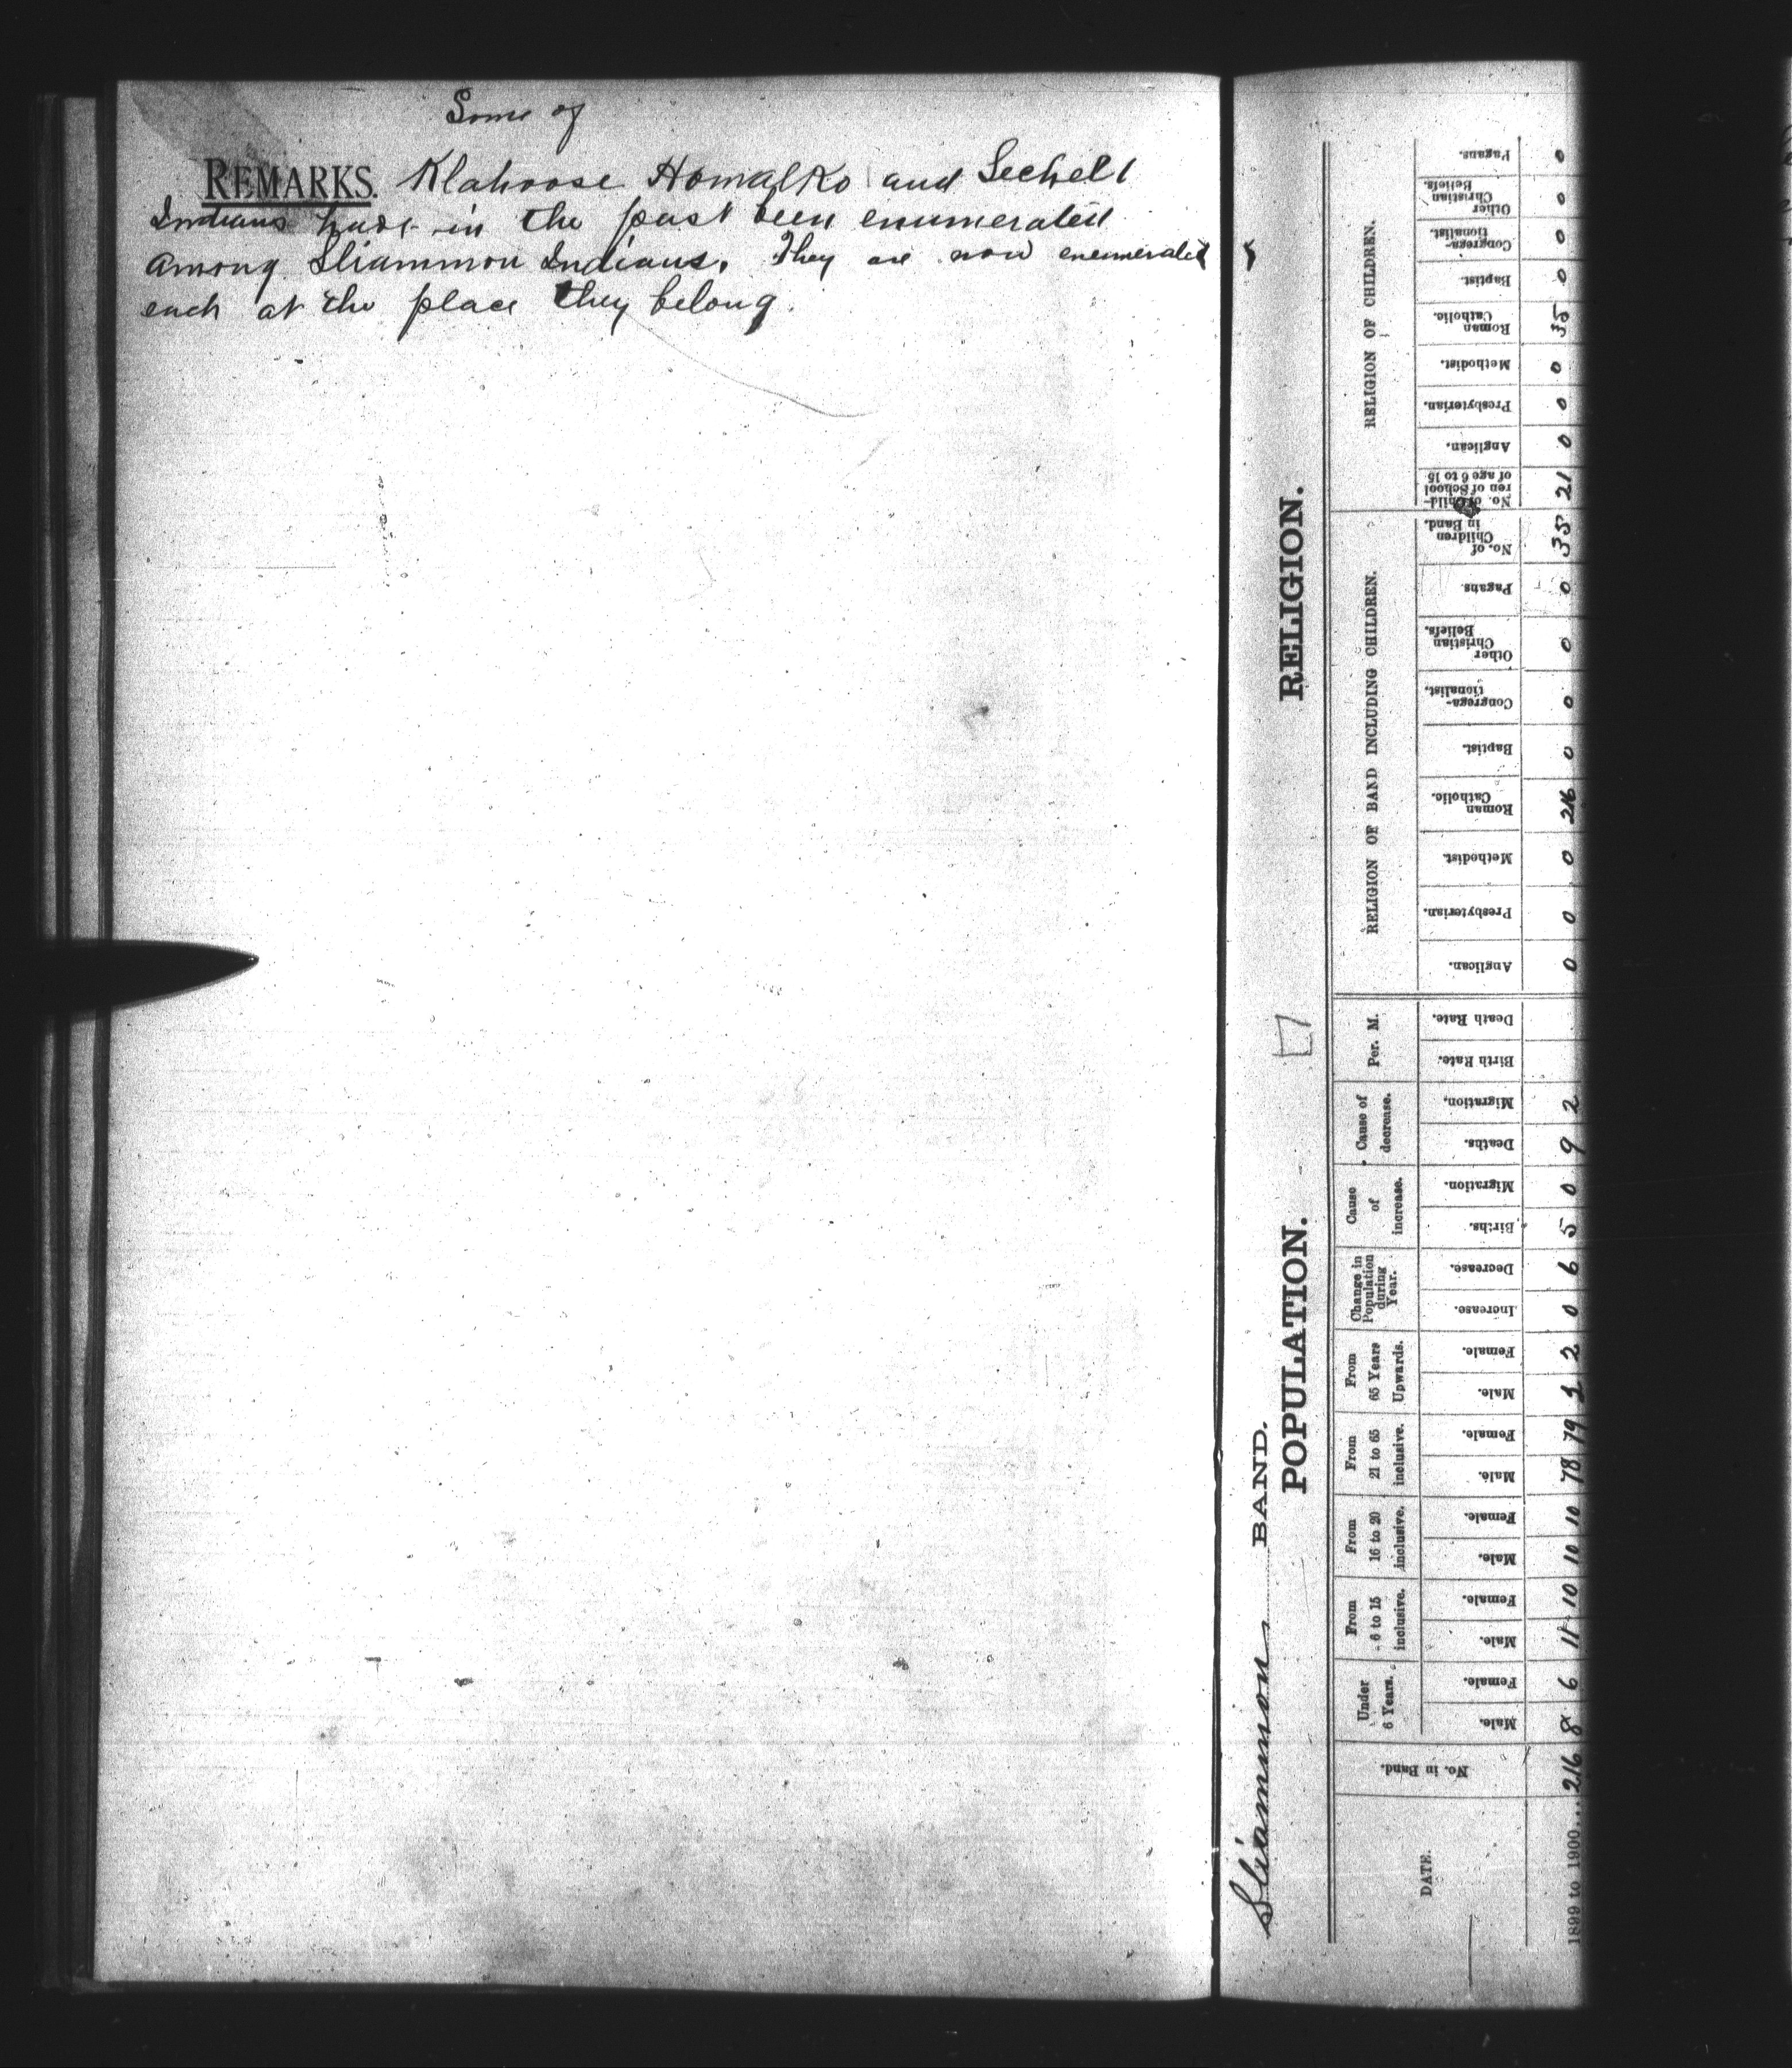 Some of
REMARKS. Klahoose Homalko and Sechelt
Indians have in the past been enumerated
among Sliammon Indians. They are now enumerated
each at the place they belong.
Sliammon BAND.
POPULATION. RELIGION.
DATE.
No. in Band.
Under 6 Years.
Male. Female.
From 6 to 15 inclusive.
Male. Female.
From 16 to 20 inclusive.
Male. Female.
From 21 to 65 inclusive.
Male. Female.
From 65 Years Upwards.
Male. Female.
Change in Population during Year.
Increase. Decrease.
Cause of increase.
Births. Migration.
Cause of decrease.
Deaths. Migration.
Per. M.
Birth Rate. Death Rate.
RELIGION OF BAND INCLUDING CHILDREN.
Anglican. Presbyterian. Methodist. Roman Catholic. Baptist. Congrega-tionalist. Other Christian Beliefs. Pagans.
No. of Children in Band.
No. of Child-ren of School of age 6 to 15
RELIGION OF CHILDREN.
Anglican. Presbyterian. Methodist. Roman Catholic. Baptist. Congrega-tionalist. Other Christian Beliefs. Pagans.
1899 to 1900... 216 8 6 11 10 10 10 78 79 2 0 6 5 0 9 2 0 0 0 216 0 0 0 0 35 21 0 0 0 35 0 0 0 0